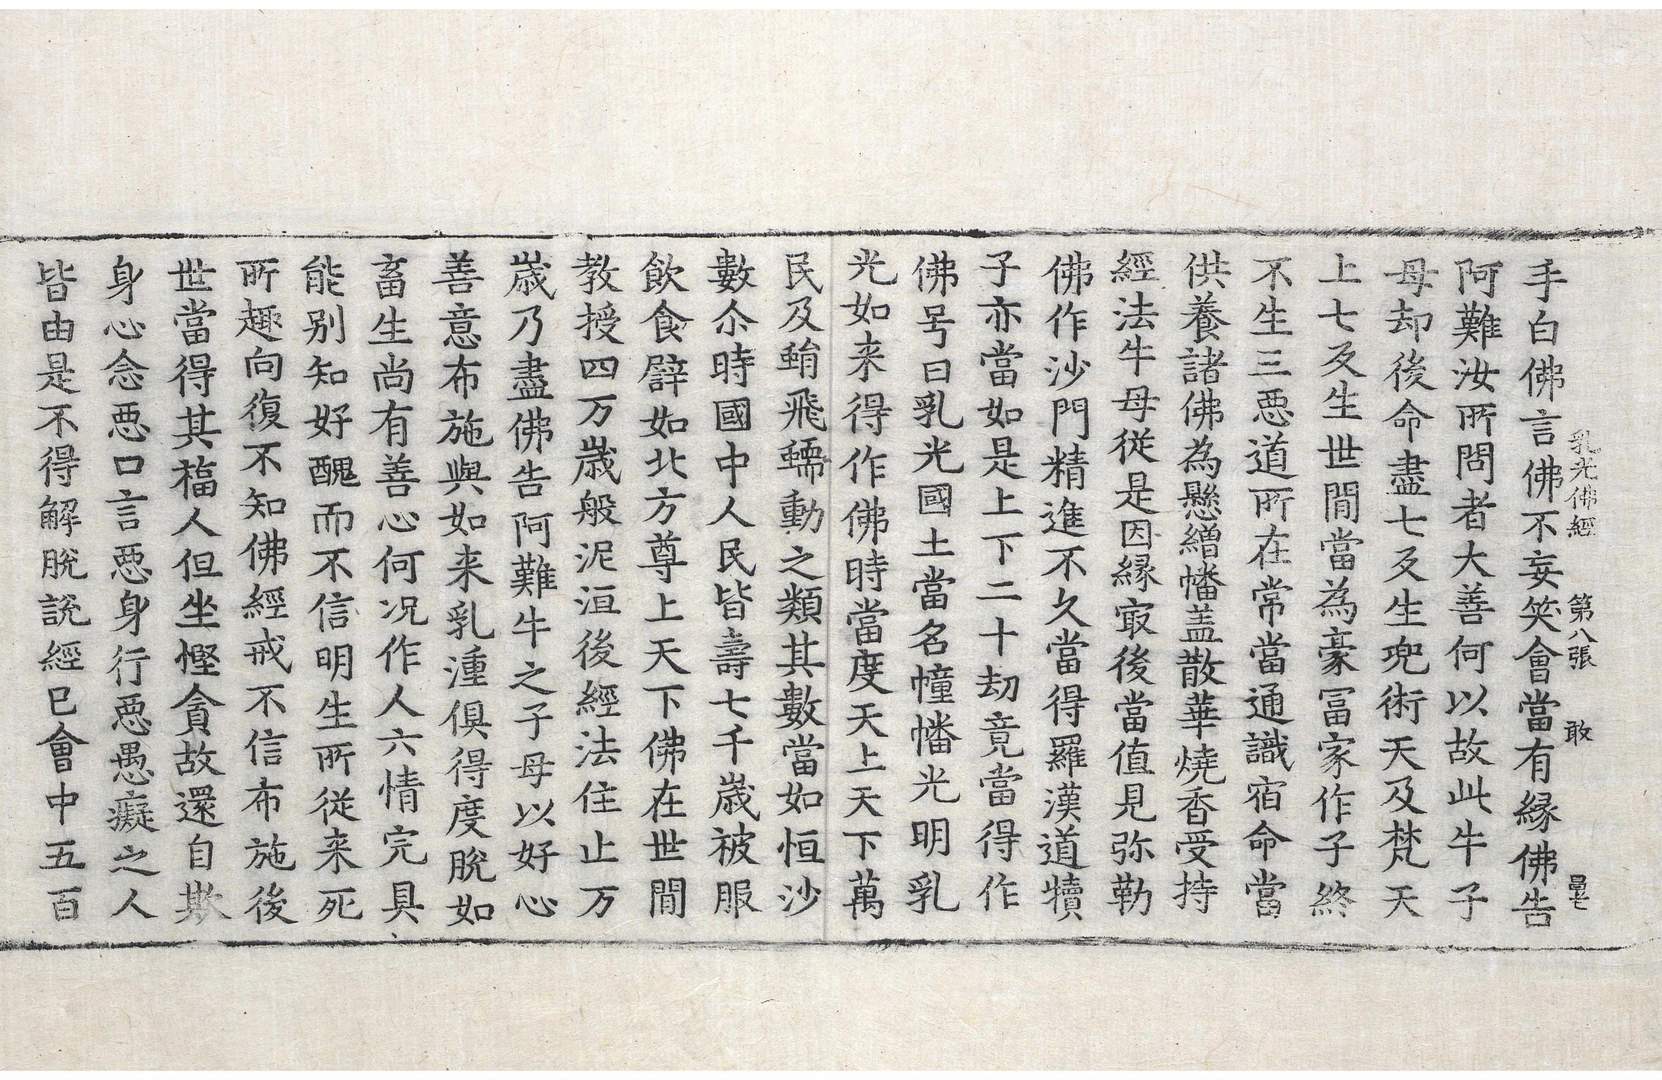 乳光佛經 第八張 敢
手白佛言佛不妄笑會當有縁佛告
阿難汝所問者大善何以故此牛子
母却後命盡七反生兜術天及梵天
上七反生世間當為豪冨家作子終
不生三惡道所在常當通識宿命當
供養諸佛為懸繒幡盖散華燒香受持
經法牛母從是因縁㝡後當值見弥勒
佛作沙門精進不久當得羅漢道犢
子亦當如是上下二十劫竟當得作
佛号曰乳光國土當名幢幡光明乳
光如来得作佛時當度天上天下萬
民及蜎飛蠕動之類其數當如恒沙
數尒時國中人民皆壽七千歲被服
飲食譬如北方尊上天下佛在世間
教授四万歲般泥洹後經法住止万
歲乃盡佛告阿難牛之子母以好心
善意布施與如来乳湩俱得度脫如
畜生尚有善心何况作人六情完具
能别知好醜而不信明生所從来死
所趣向復不知佛經戒不信布施後
世當得其福人但坐慳貪故還自欺
身心念惡口言惡身行惡愚癡之人
皆由是不得解脫說經已會中五百